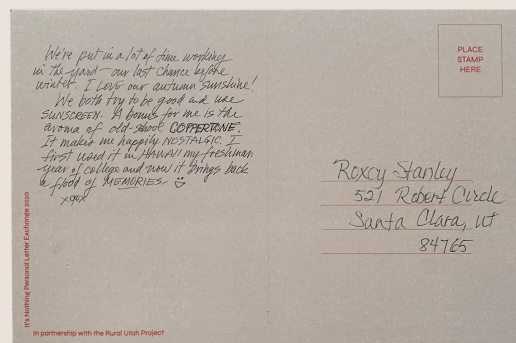 We've put in a lot of time working
in the yard – our last chance before
winter. I love our autumn sunshine!
We both try to be good and use
SUNSCREEN. A bonus for me is the
aroma of old-school COPPERTONE.
It makes me happily NOSTALGIC. I
first used it in HAWAII my freshman
year of college and now it brings back
a flood of MEMORIES.
xoxox
PLACE
STAMP
HERE
Roxcy Stanley
521 Robert Circle
Santa Clara, UT
84765
It's Nothing Personal Letter Exchange 2020
In partnership with the Rural Utah Project